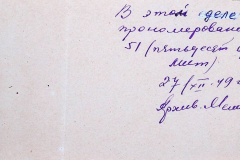 В этом деле
пронумерован
51 (пятьдесят
лист)
27/XII-49
Архив.